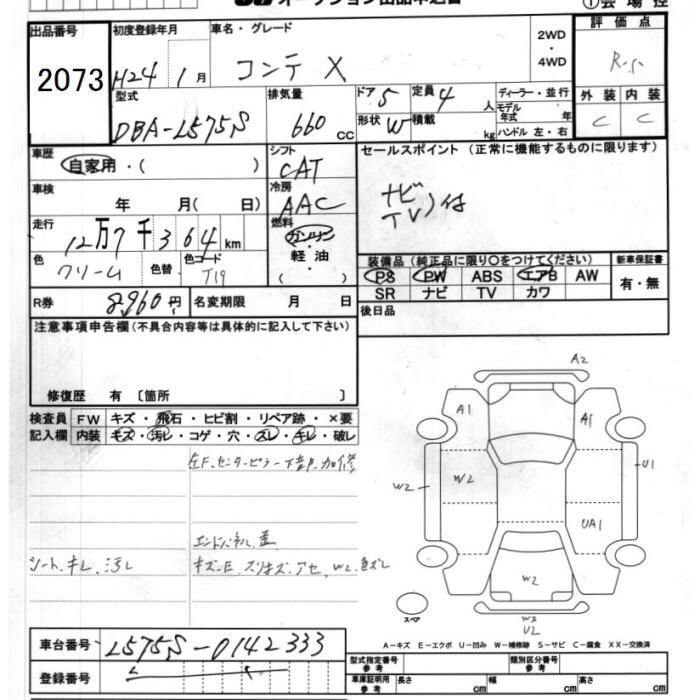 オークション出品申込書
①会場控
出品番号 2073
初度登録年月 H24 1月
車名・グレード コンテ X
2WD・4WD
評価点 R-5
外装 C 内装 C
型式 DBA-L575S
排気量 660 CC
ドア 5 定員 4人
形状 W 積載 kg
ディーラー・並行
モデル年式 年
ハンドル 左・右
車歴 自家用・( )
シフト CAT
冷房 AAC
車検 年 月(日)
走行 12万7千364km
燃料 ガソリン・軽油( )
色 クリーム 色替 色コード T19
R券 8,960円 名変期限 月 日
セールスポイント (正常に機能するものに限ります)
ナビ
TV)付
装備品(純正品に限り○をつけてください)
PS PW ABS エアB AW
SR ナビ TV カワ
新車保証書
有・無
後日品
注意事項申告欄(不具合内容等は具体的に記入して下さい)
修復歴 有 〔箇所 〕
検査員記入欄
FW キズ・飛石・ヒビ割・リペア跡・×要
内装 キズ・汚レ・コゲ・穴・スレ・キレ・破レ
左F.センターピラー下部加修
エンドパネル.歪
シート.キレ.汚レ
キズ.E スリキズ.アセ W2.色ズレ
A2
A1
A1
W2
W2
U1
UA1
W2
W2
U2
スペア
A-キズ E-エクボ U-凹み W-補修跡 S-サビ C-腐食 XX-交換済
車台番号 L575S-0142333
登録番号
型式指定番号 参考
類別区分番号 参考
車庫証明用 参考 長さ cm 幅 cm 高さ cm